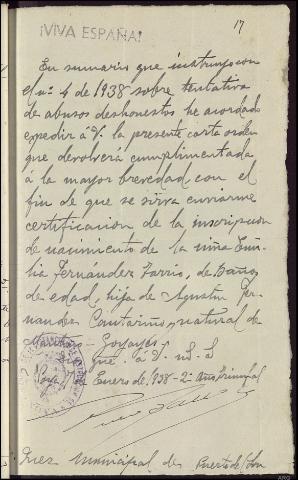 ¡VIVA ESPAÑA!
17
En sumario que instruyo con
el nº 4 de 1938 sobre tentativa
de abusos deshonestos he acordado
expedir á V. la presente carta orden
que devolverá cumplimentada
á la mayor brevedad con el
fin de que se sirva enviarme
certificacion de la inscripcion
de nacimiento de la niña Emi-
lia Fernández Farrio, de años
de edad, hija de Agustin Fer-
nandez Cantariño, natural de
Goyanes
gue. á V. m. s.
Enero de 1938 - 2º Año Triunfal
Juez Municipal de Puerto del Son